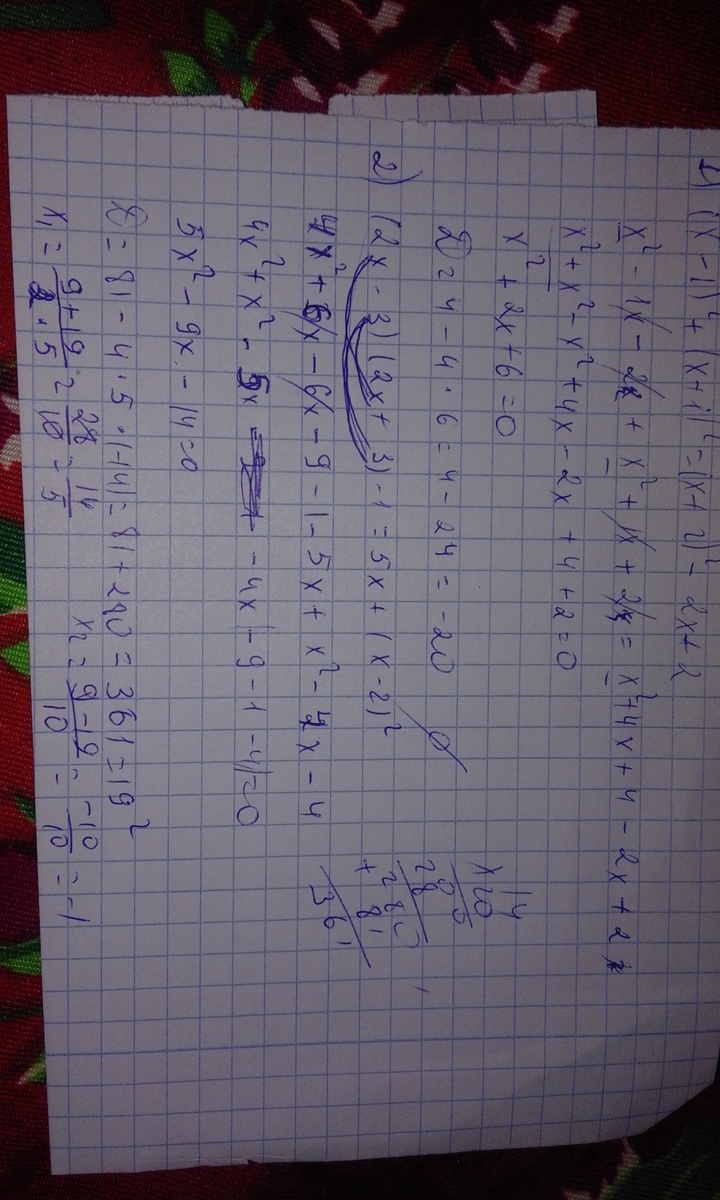 1) (x-1)² + (x+1)² = (x+2)² - 2x+2
x² - 1x - 2x + x² + 1x + 2x = x²+4x+4-2x+2
x²+x²-x²+4x-2x+4+2=0
x²+2x+6=0
D=4-4·6=4-24=-20 ∅
2) (2x-3)(2x+3)-1=5x+(x-2)²
4x²+6x-6x-9-1-5x+x²-4x-4
4x²+x²-5x -4x-9-1-4=0
5x²-9x-14=0
D=81-4·5·(-14)=81+280=361=19²
x₁=9+19/2·5=28/10=14/5 x₂=9-19/10=-10/10=-1
14
x20
00
28
280
+81
361